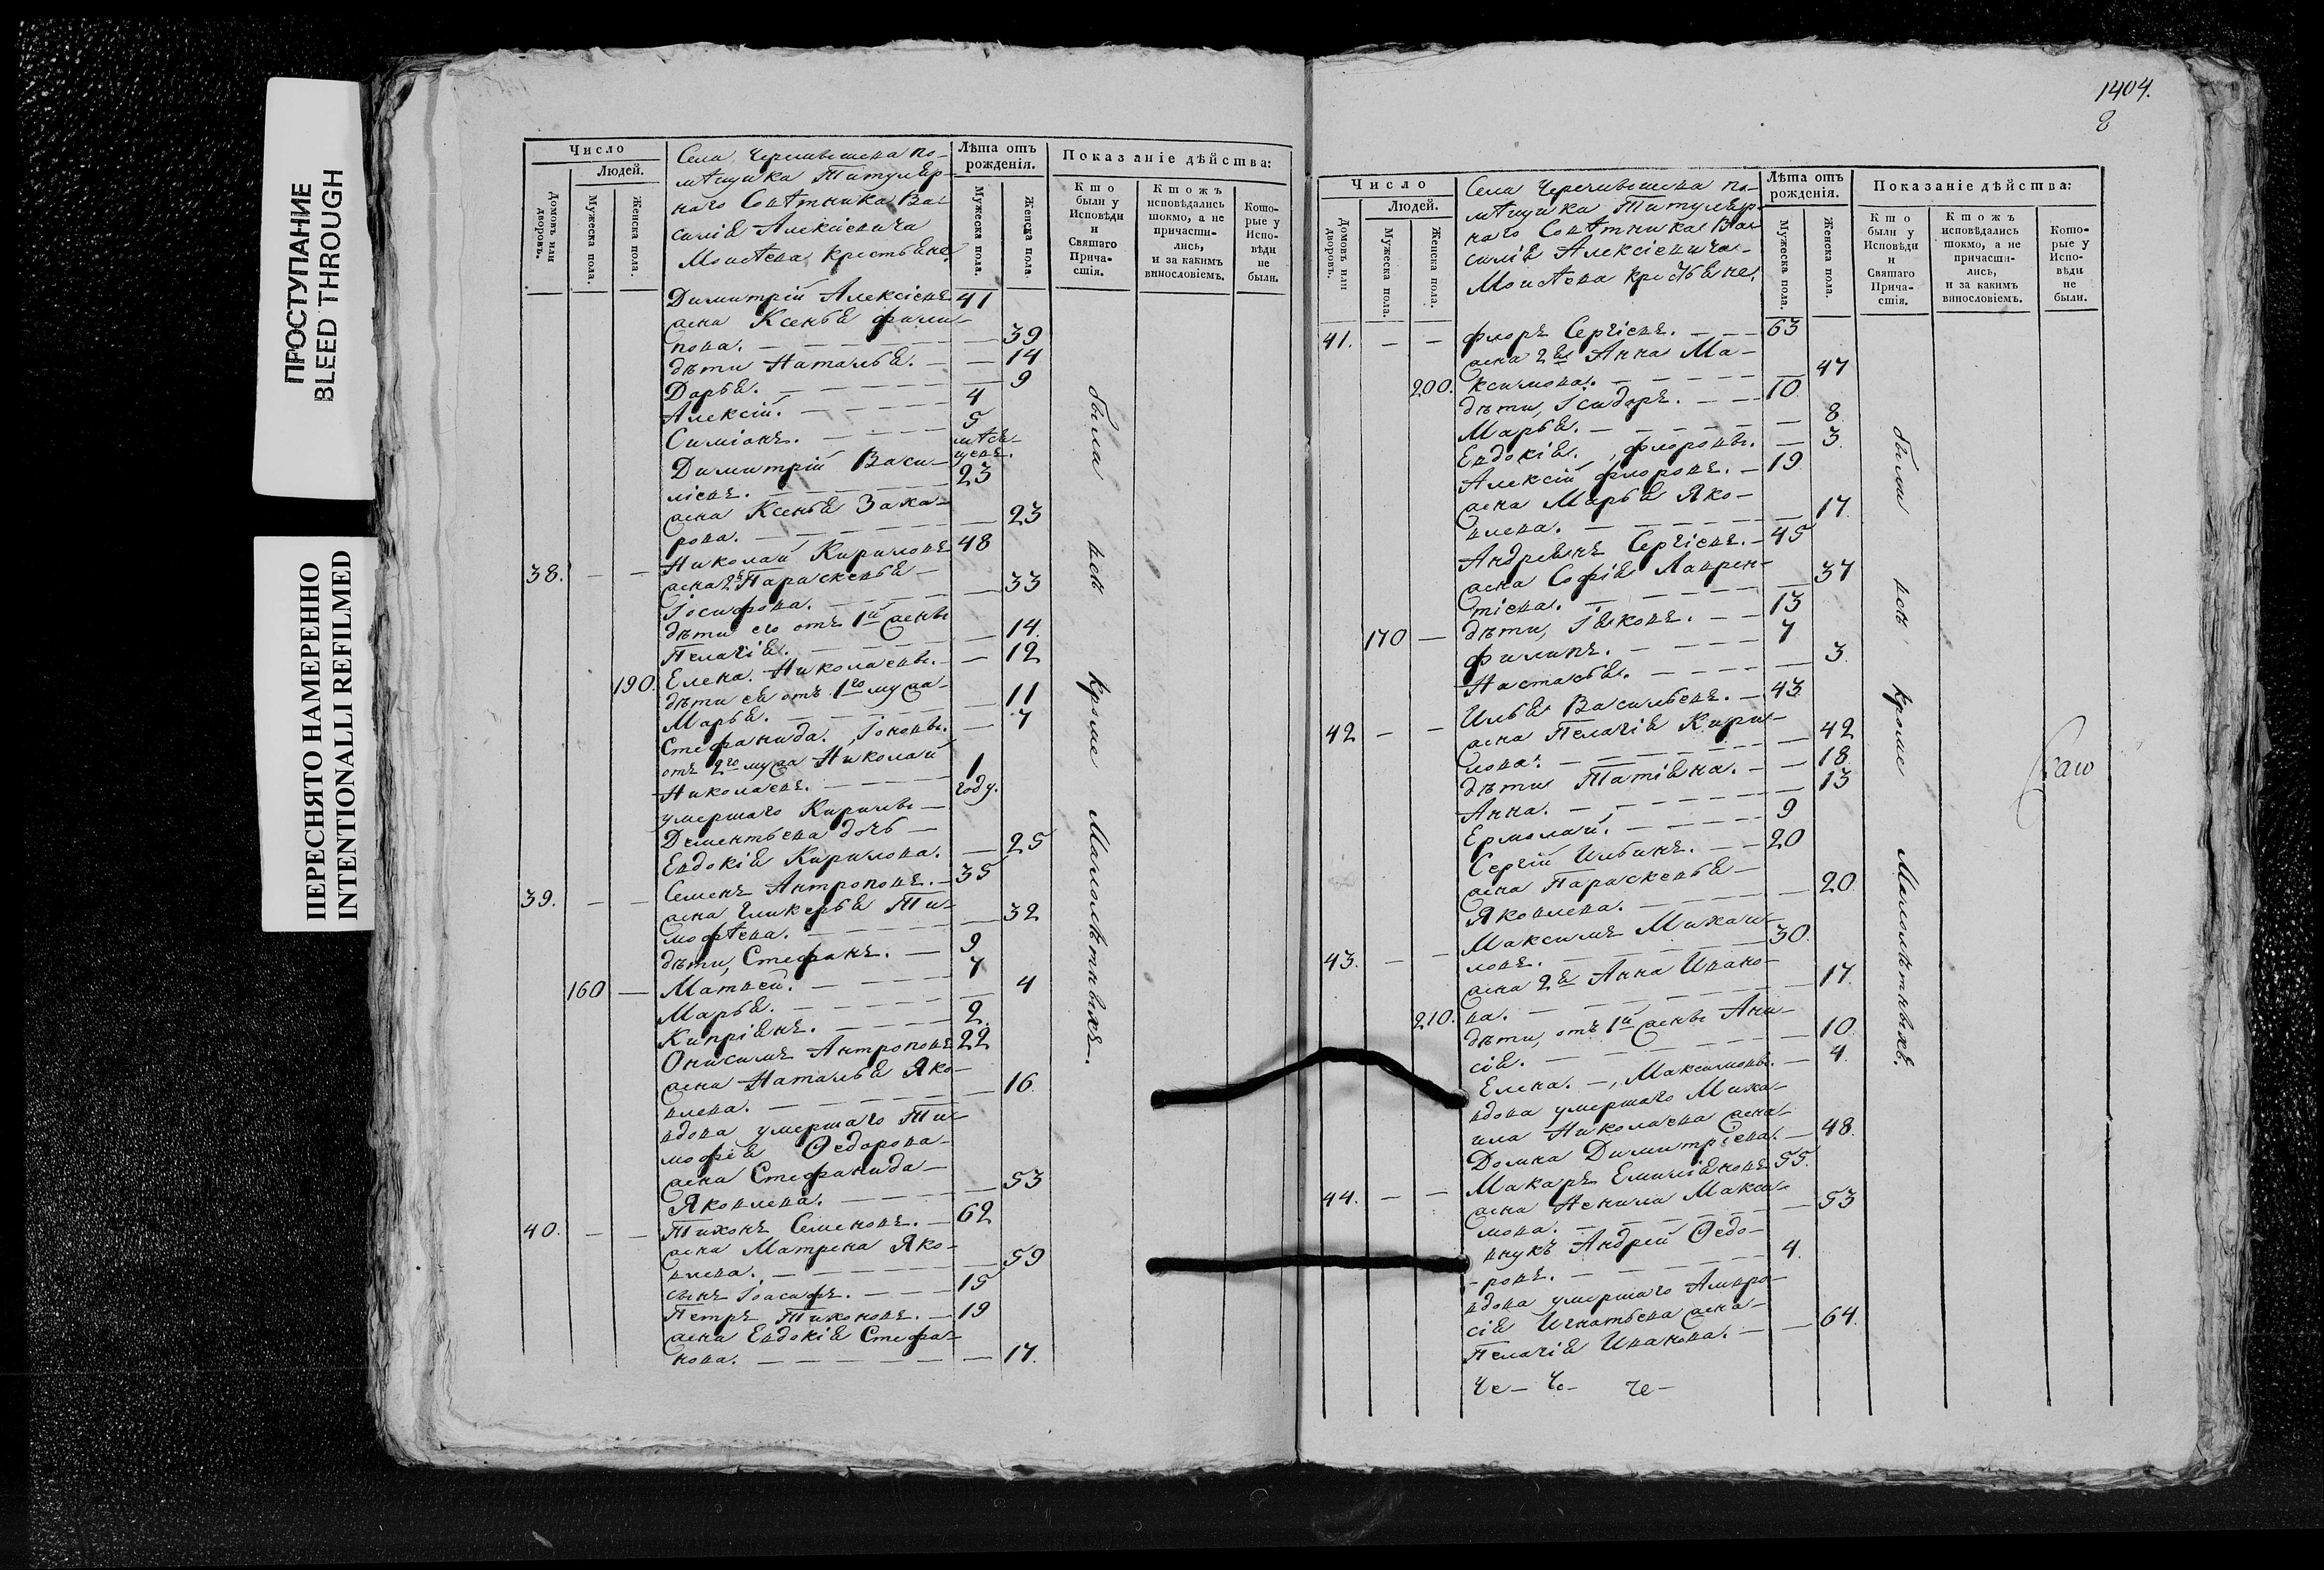 ПРОСТУПАНИЕ
BLEED THROUGH
ПЕРЕСНЯТО НАМЕРЕННО
INTENTIONALLI REFILMED
Число
Людей.
Домовъ или дворовъ.
Мужеска пола.
Женска пола.
мѣщика Титуляр-
наго Совѣтника Ва-
силія Алексіевича
Моисѣева крестьяне,
Лѣта отъ рожденія.
Мужеска пола.
Женска пола.
Показаніе дѣйства:
Кто были у Исповѣди и Святаго Прича-стія.
Ктожъ исповѣдались токмо, а не причасти-лись, и за какимъ винословіемъ.
Кото-рые у Испо-вѣди не были.
Димитрій Алексіевъ 41
жена Ксенья Фили-
пова. — 39
дѣти Наталья. — 14
Дарья. — 9
Алексій. — 4
Симіонъ. — 5
мѣся-
цевъ.
Димитрій Васи-
ліевъ. — 23
жена Ксенья Заха-
рова. — 23
38. — — Николай Кириловъ 48
жена 2я Параскевья —
Іосифова. — 33
дѣти его отъ 1й жены
Пелагія. — 14.
190. Елена. Николаевы. — 12
дѣти ея отъ 1го мужа
Марья. — 11
Стефанида. Іоновы. — 7
отъ 2го мужа Николай
Николаевъ. — 1
году.
умершаго Кирилы —
Дементьева дочь —
Евдокія Кирилова. — 25
39. — — Семенъ Антроповъ. — 35
жена Гликерья Ти-
мофѣева. — 32
дѣти, Стефанъ. — 9
160 — Матвей. — 7
Марья. — 4
Кипріянъ. — 2.
Онисимъ Антроповъ 22
жена Наталья Яко-
влева. — 16.
вдова умершаго Ти-
мофея Ѳедорова
жена Стефанида —
Яковлева. — 53
40. — — Тихонъ Семеновъ. — 62
жена Матрена Яко-
влева. — 59
сынъ Іоасафъ. — 15
Петръ Тихоновъ. — 19
жена Евдокія Стефа-
нова. — 17.
были всѣ кроме Малолѣтныхъ.
1404.
8
Число
Людей.
Домовъ или дворовъ.
Мужеска пола.
Женска пола.
мѣщика Титуляр-
наго Совѣтника Ва-
силія Алексіевича
Моисѣева крестьяне,
Лѣта отъ рожденія.
Мужеска пола.
Женска пола.
Показаніе дѣйства:
Кто были у Исповѣди и Святаго Прича-стія.
Ктожъ исповѣдались токмо, а не причасти-лись, и за какимъ винословіемъ.
Кото-рые у Испо-вѣди не были.
41. — — Флоръ Сергіевъ. — 63
жена 2я Анна Ма-
200. ксимова. — 47
дѣти, Ісидоръ. — 10.
Марья. — 8.
Евдокія. Флоровы. — 3.
Алексій Флоровъ. — 19
жена Марья Яко-
влева. — 17.
Андреянъ Сергіевъ. — 45
жена Софія Лаврен-
тіева. — 37
170 — дѣти, Іяковъ. — 13
Филипъ. — 7
Настасья. — 3.
42 — — Илья Васильевъ. — 43.
жена Пелагія Кири-
лова. — 42
дѣти Татіяна. — 18.
Анна. — 13
Ермолай. — 9
Сергій Ильинъ. — 20
жена Параскевья —
Яковлева. — 20.
43. — — Максимъ Михаи-
ловъ. — 30.
жена 2я Анна Ивано-
210. ва. — 17.
дѣти, отъ 1й жены Ани-
сія. — 10.
Елена. —, Максимовы. — 4.
вдова умершаго Миха-
ила Николаева жена
Домна Димитріева. — 48.
44. — — Макаръ Емиліяновъ 55.
жена Ненила Макси-
мова. — 53
внукъ Андрей Ѳедо-
ровъ. — 4.
вдова умершаго Амвро-
сія Игнатьева жена —
Пелагія Иванова. — 64.
Че — Че — че —
были всѣ кроме Малолѣтныхъ.